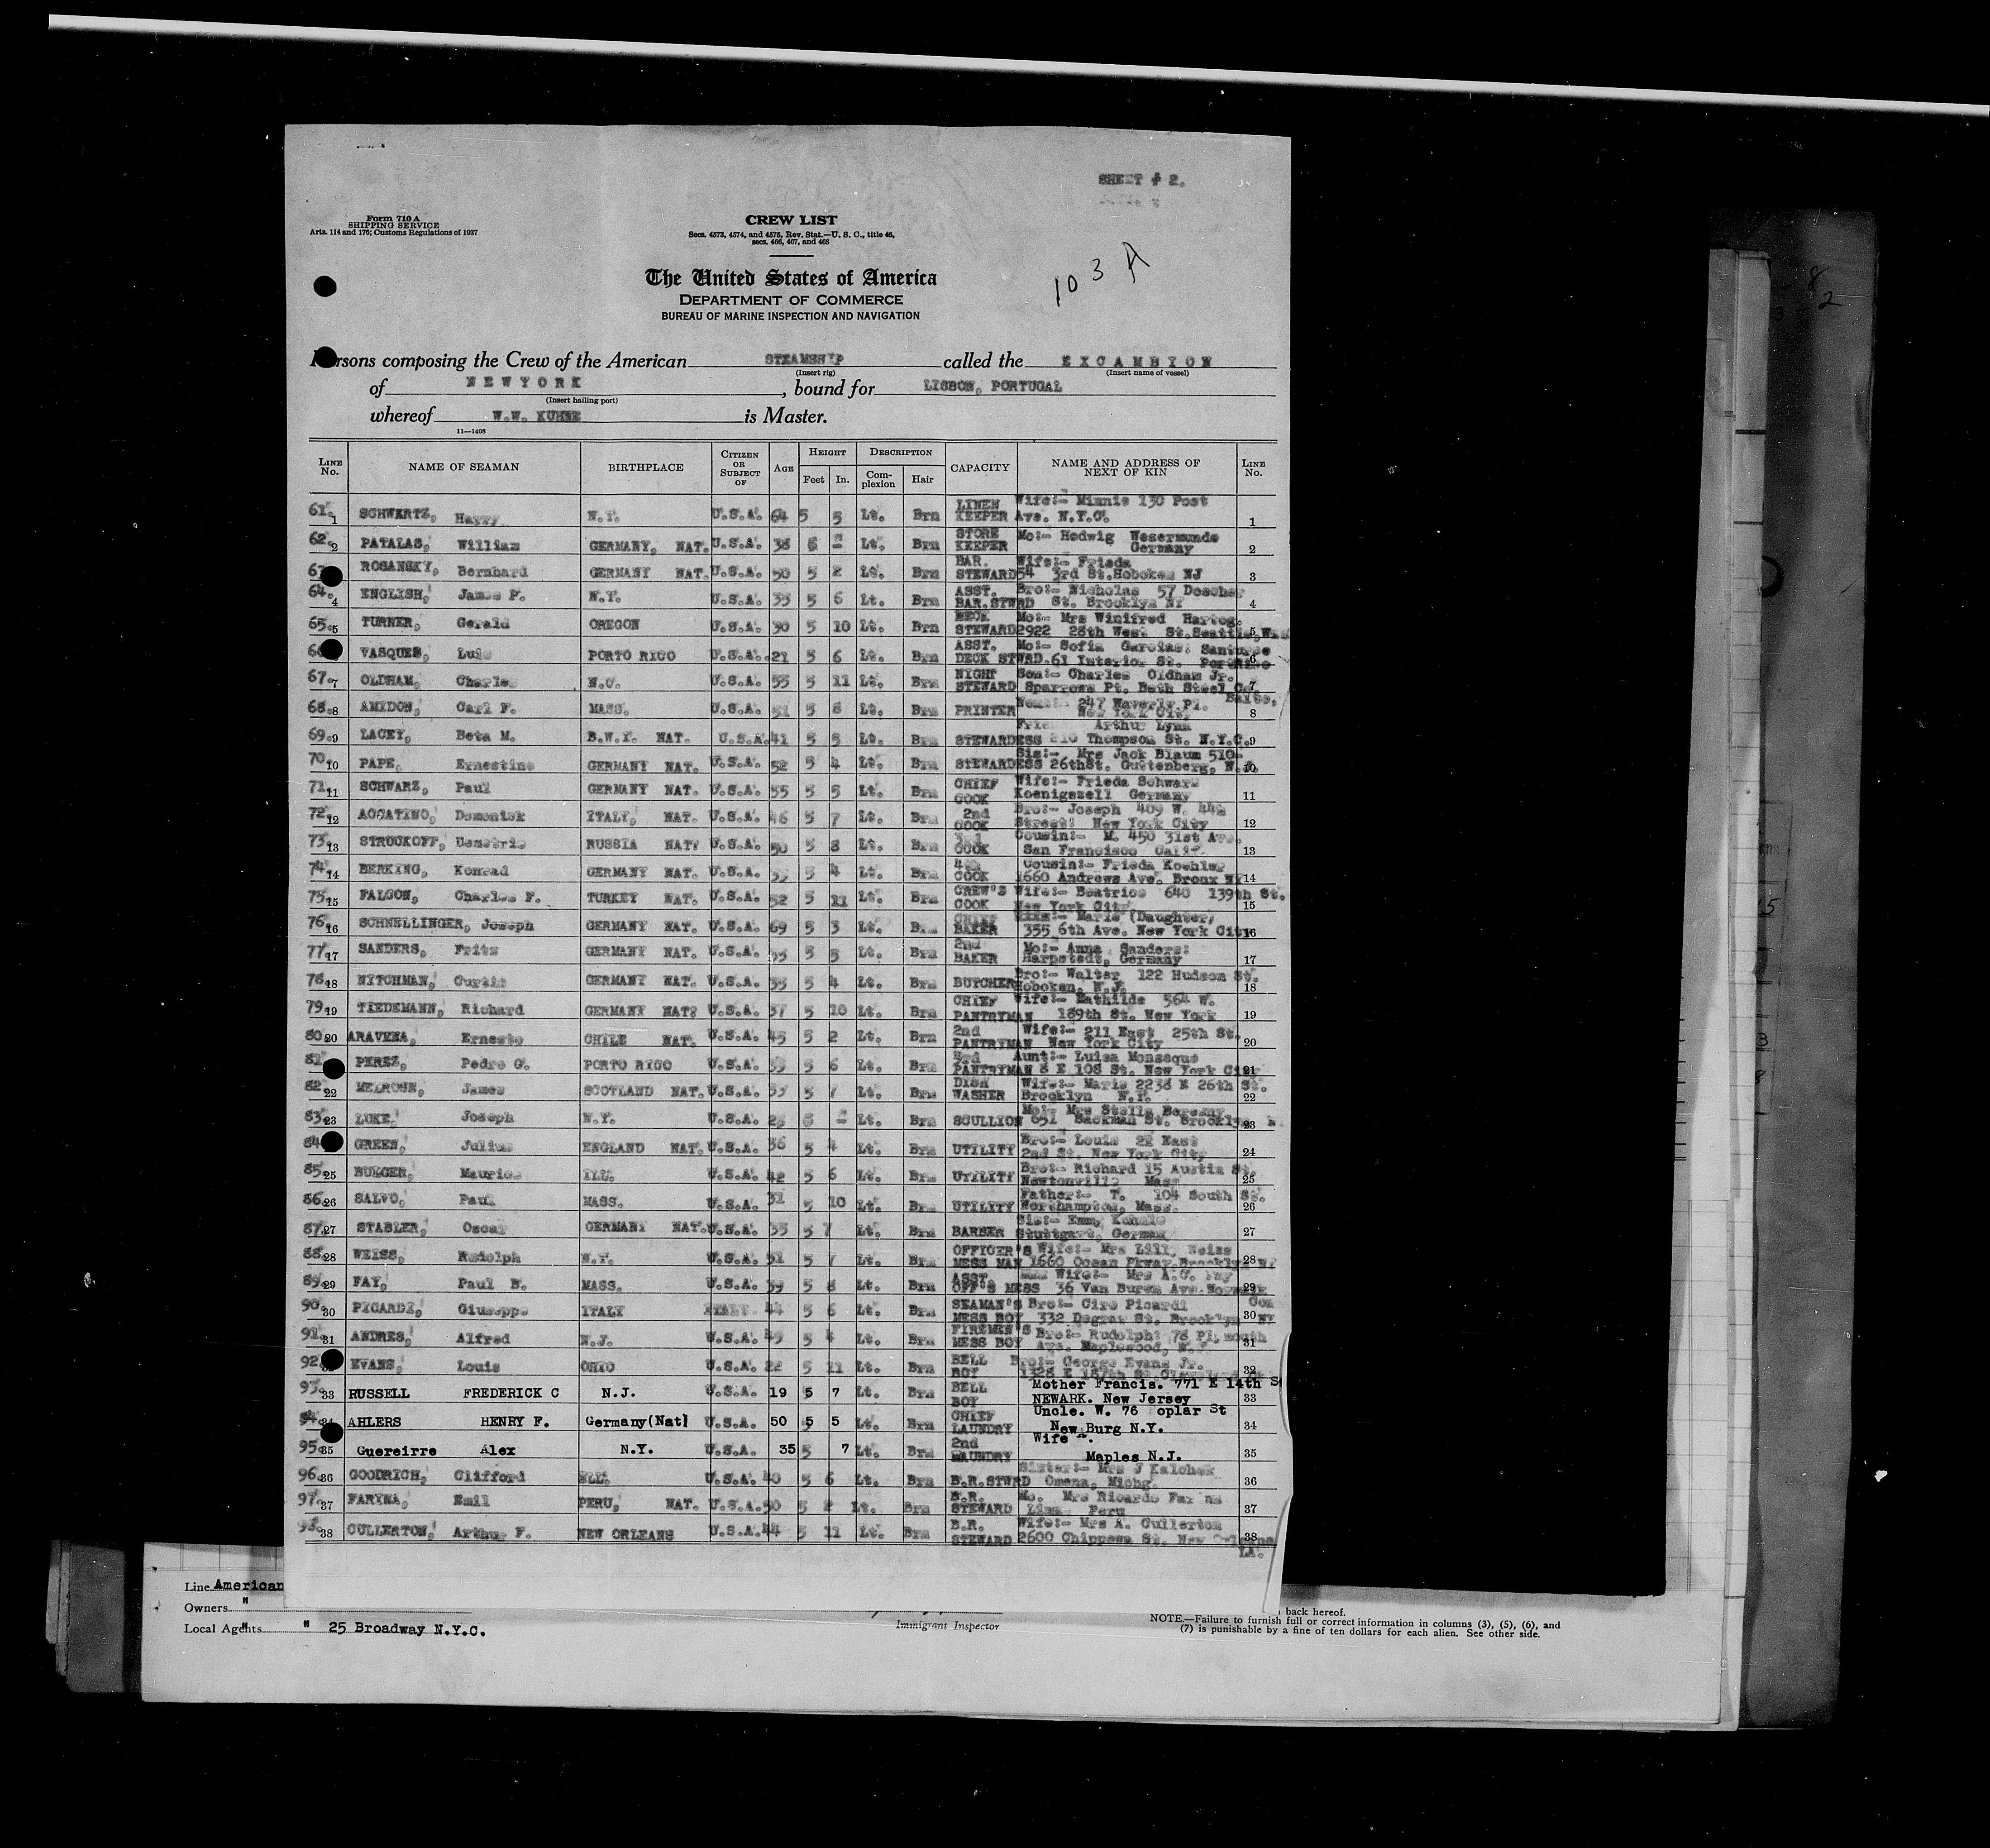 SHEET # 2.
Form 710 A
SHIPPING SERVICE
Arts. 114 and 176; Customs Regulations of 1937
CREW LIST
Secs. 4573, 4574, and 4575, Rev. Stat.—U. S. C., title 46,
secs. 466, 467, and 468
103 A
The United States of America
DEPARTMENT OF COMMERCE
BUREAU OF MARINE INSPECTION AND NAVIGATION
Persons composing the Crew of the American STEAMSHIP called the EXCAMBION
(Insert rig) (Insert name of vessel)
of NEWYORK, bound for LISBON, PORTUGAL
(Insert hailing port)
whereof W.W. KUHNE is Master.
11—1408
LINE No. NAME OF SEAMAN BIRTHPLACE CITIZEN OR SUBJECT OF AGE HEIGHT Feet In. DESCRIPTION Complexion Hair CAPACITY NAME AND ADDRESS OF NEXT OF KIN LINE No.
61. 1 SCHWARTZ, Harry N.Y. U.S.A. 64 5 5 Lt. Brn LINEN KEEPER Wife:- Minnie 130 Post Ave. N.Y.C. 1
62. 2 PATALAS, William GERMANY, NAT. U.S.A. 38 6 - Lt. Brn STORE KEEPER Mo:- Hedwig Wesermunde Germany 2
ROSANSKY, Bernhard GERMANY NAT. U.S.A. 50 5 2 Lt. Brn BAR. STEWARD Wife:- Frieda 54 3rd St. Hoboken NJ 3
64. 4 ENGLISH, James P. N.Y. U.S.A. 5 6 Lt. Brn ASST. BAR.STWRD Bro:- Nicholas 57 St. Brooklyn NY 4
65. 5 TURNER, Gerald OREGON U.S.A. 30 5 10 Lt. Brn DECK STEWARD Mo:- Mrs Winifred Hartog. 2922 28th West St. Seattle, 5
VASQUES, Luis PORTO RICO U.S.A. 21 5 6 Lt. Brn ASST. DECK STWRD. Mo:- Sofia 61 Interior St. 6
67. 7 OLDHAM, Charles N.C. U.S.A. 5 11 Lt. Brn NIGHT STEWARD Son:- Charles Oldham Jr. Sparrows Pt. Beth Steel Co. Balto. 7
68. 8 AMIDON, Carl F. MASS. U.S.A. 5 8 Lt. Brn PRINTER 247 Waverly Pl. New York City 8
69. 9 LACEY, Beta M. B.W.I. NAT. U.S.A. 41 5 5 Lt. Brn STEWARDESS Arthur Lynn 210 Thompson St. N.Y.C. 9
70. 10 PAPE, Ernestine GERMANY NAT. U.S.A. 52 5 4 Lt. Brn STEWARDESS Sis:- Mrs Jack Blaum 510- 26thSt. Guttenberg, N.J. 10
71. 11 SCHWARZ, Paul GERMANY NAT. U.S.A. 55 5 5 Lt. Brn CHIEF COOK Wife:- Frieda Schwarz Koenigszell Germany 11
72. 12 ACCATINO, Domenick ITALY, NAT. U.S.A. 46 5 7 Lt. Brn 2nd COOK Bro:- Joseph 409 W. Street: New York City 12
73. 13 STRUCKOFF, RUSSIA NAT. U.S.A. 50 5 8 Lt. Brn COOK Cousin:- M. 450 31st Ave. San Francisco Calif. 13
74. 14 BERKING, Konrad GERMANY NAT. U.S.A. 5 4 Lt. Brn COOK Cousin:- Frieda Koehler 1660 Andrews Ave. Bronx NY 14
75. 15 FALCON, Charles F. TURKEY NAT. U.S.A. 52 5 11 Lt. Brn CREW'S COOK Wife:- Beatrice 640 139th St. New York City. 15
76. 16 SCHNELLINGER, Joseph GERMANY NAT. U.S.A. 69 5 3 Lt. Brn CHIEF BAKER Marie (Daughter) 355 6th Ave. New York City 16
77. 17 SANDERS, Fritz GERMANY NAT. U.S.A. 5 5 Lt. Brn 2nd BAKER Mo:- Anna Sanders: Harpstedt, Germany 17
78. 18 NITCHMAN, Curtis GERMANY NAT. U.S.A. 5 4 Lt. Brn BUTCHER Bro:- Walter 122 Hudson St. Hoboken, N.J. 18
79. 19 TIEDEMANN, Richard GERMANY NAT. U.S.A. 37 5 10 Lt. Brn CHIEF PANTRYMAN Wife:- Mathilde 564 W. 189th St. New York 19
80. 20 ARAVENA, Ernesto CHILE NAT. U.S.A. 45 5 2 Lt. Brn 2nd PANTRYMAN Wife:- 211 East 25th St. New York City 20
81. PEREZ, Pedro G. PORTO RICO U.S.A. 5 6 Lt. Brn 3rd PANTRYMAN Aunt:- Luisa 8 E 108 St. New York City 21
82. 22 MELROSE, James SCOTLAND NAT. U.S.A. 5 7 Lt. Brn DISH WASHER Wife:- Marie 2238 E 26th St. Brooklyn N.Y. 22
83. 23 LUKE, Joseph N.Y. U.S.A. 6 - Lt. Brn SCULLION Mo:- Mrs Stella 651 Sackman St. Brooklyn 23
84 GREEN, Julius ENGLAND NAT. U.S.A. 36 5 4 Lt. Brn UTILITY Bro:- Louis East 2nd St. New York City 24
85. 25 BURGER, Maurice ILL. U.S.A. 42 5 6 Lt. Brn UTILITY Bro:- Richard 15 Austin St. Newtonville Mass 25
86. 26 SALVO, Paul MASS. U.S.A. 31 5 10 Lt. Brn UTILITY Father:- T. 104 South St. Northampton, Mass. 26
87. 27 STABLER, Oscar GERMANY NAT. U.S.A. 35 5 7 Lt. Brn BARBER Sis:- Stuttgart, German 27
88. 28 WEISS, Rudolph N.Y. U.S.A. 51 5 7 Lt. Brn OFFICER'S MESS MAN Wife:- Mrs Weiss 1660 Ocean Pkway. Brooklyn NY 28
89. 29 FAY, Paul B. MASS. U.S.A. 39 5 8 Lt. Brn ASST OFF'S MESS Wife:- Mrs A.C. Fay 36 Van Buren Ave. Norwalk Con 29
90. 30 PICARDI, Giuseppe ITALY ITALY 44 5 6 Lt. Brn SEAMAN'S MESS BOY Bro:- Ciro Picardi 332 Degraw St. Brooklyn NY 30
91. 31 ANDRES, Alfred N.J. U.S.A. 49 5 4 Lt. Brn FIREMEN'S MESS BOY Bro:- Rudolph: 78 Plymouth Ave. Maplewood, N.J. 31
92. EVANS, Louis OHIO U.S.A. 22 5 11 Lt. Brn BELL BOY Bro:- George Evans Jr. 1328 E 187th St. 32
93. 33 RUSSELL FREDERICK C N.J. U.S.A. 19 5 7 Lt. Brn BELL BOY Mother Francis. 771 E 14th St NEWARK. New Jersey 33
94. 34 AHLERS HENRY F. Germany(Nat) U.S.A. 50 5 5 Lt. Brn CHIEF LAUNDRY Uncle. W. 76 oplar St New Burg N.Y. 34
95. 35 Guereirre Alex N.Y. U.S.A. 35 7 Lt. Brn 2nd LAUNDRY Wife Maples N.J. 35
96. 36 GOODRICH, Clifford ILL. U.S.A. 40 5 6 Lt. Brn B.R.STWRD Sister:- Mrs J Kalchek Omena, Michg. 36
97. 37 FARYNA, Emil PERU, NAT. U.S.A. 50 5 2 Lt. Brn B.R. STEWARD Mo. Mrs Ricardo Lima Peru 37
98. 38 CULLERTON, Arthur F. NEW ORLEANS U.S.A. 44 5 11 Lt. Brn B.R. STEWARD Wife:- Mrs A. Cullerton 2600 Chippewa St. New Orleans LA. 38
Line American
Owners "
Local Agents " " 25 Broadway N.Y.C.
Immigrant Inspector
back hereof.
NOTE.—Failure to furnish full or correct information in columns (3), (5), (6), and
(7) is punishable by a fine of ten dollars for each alien. See other side.